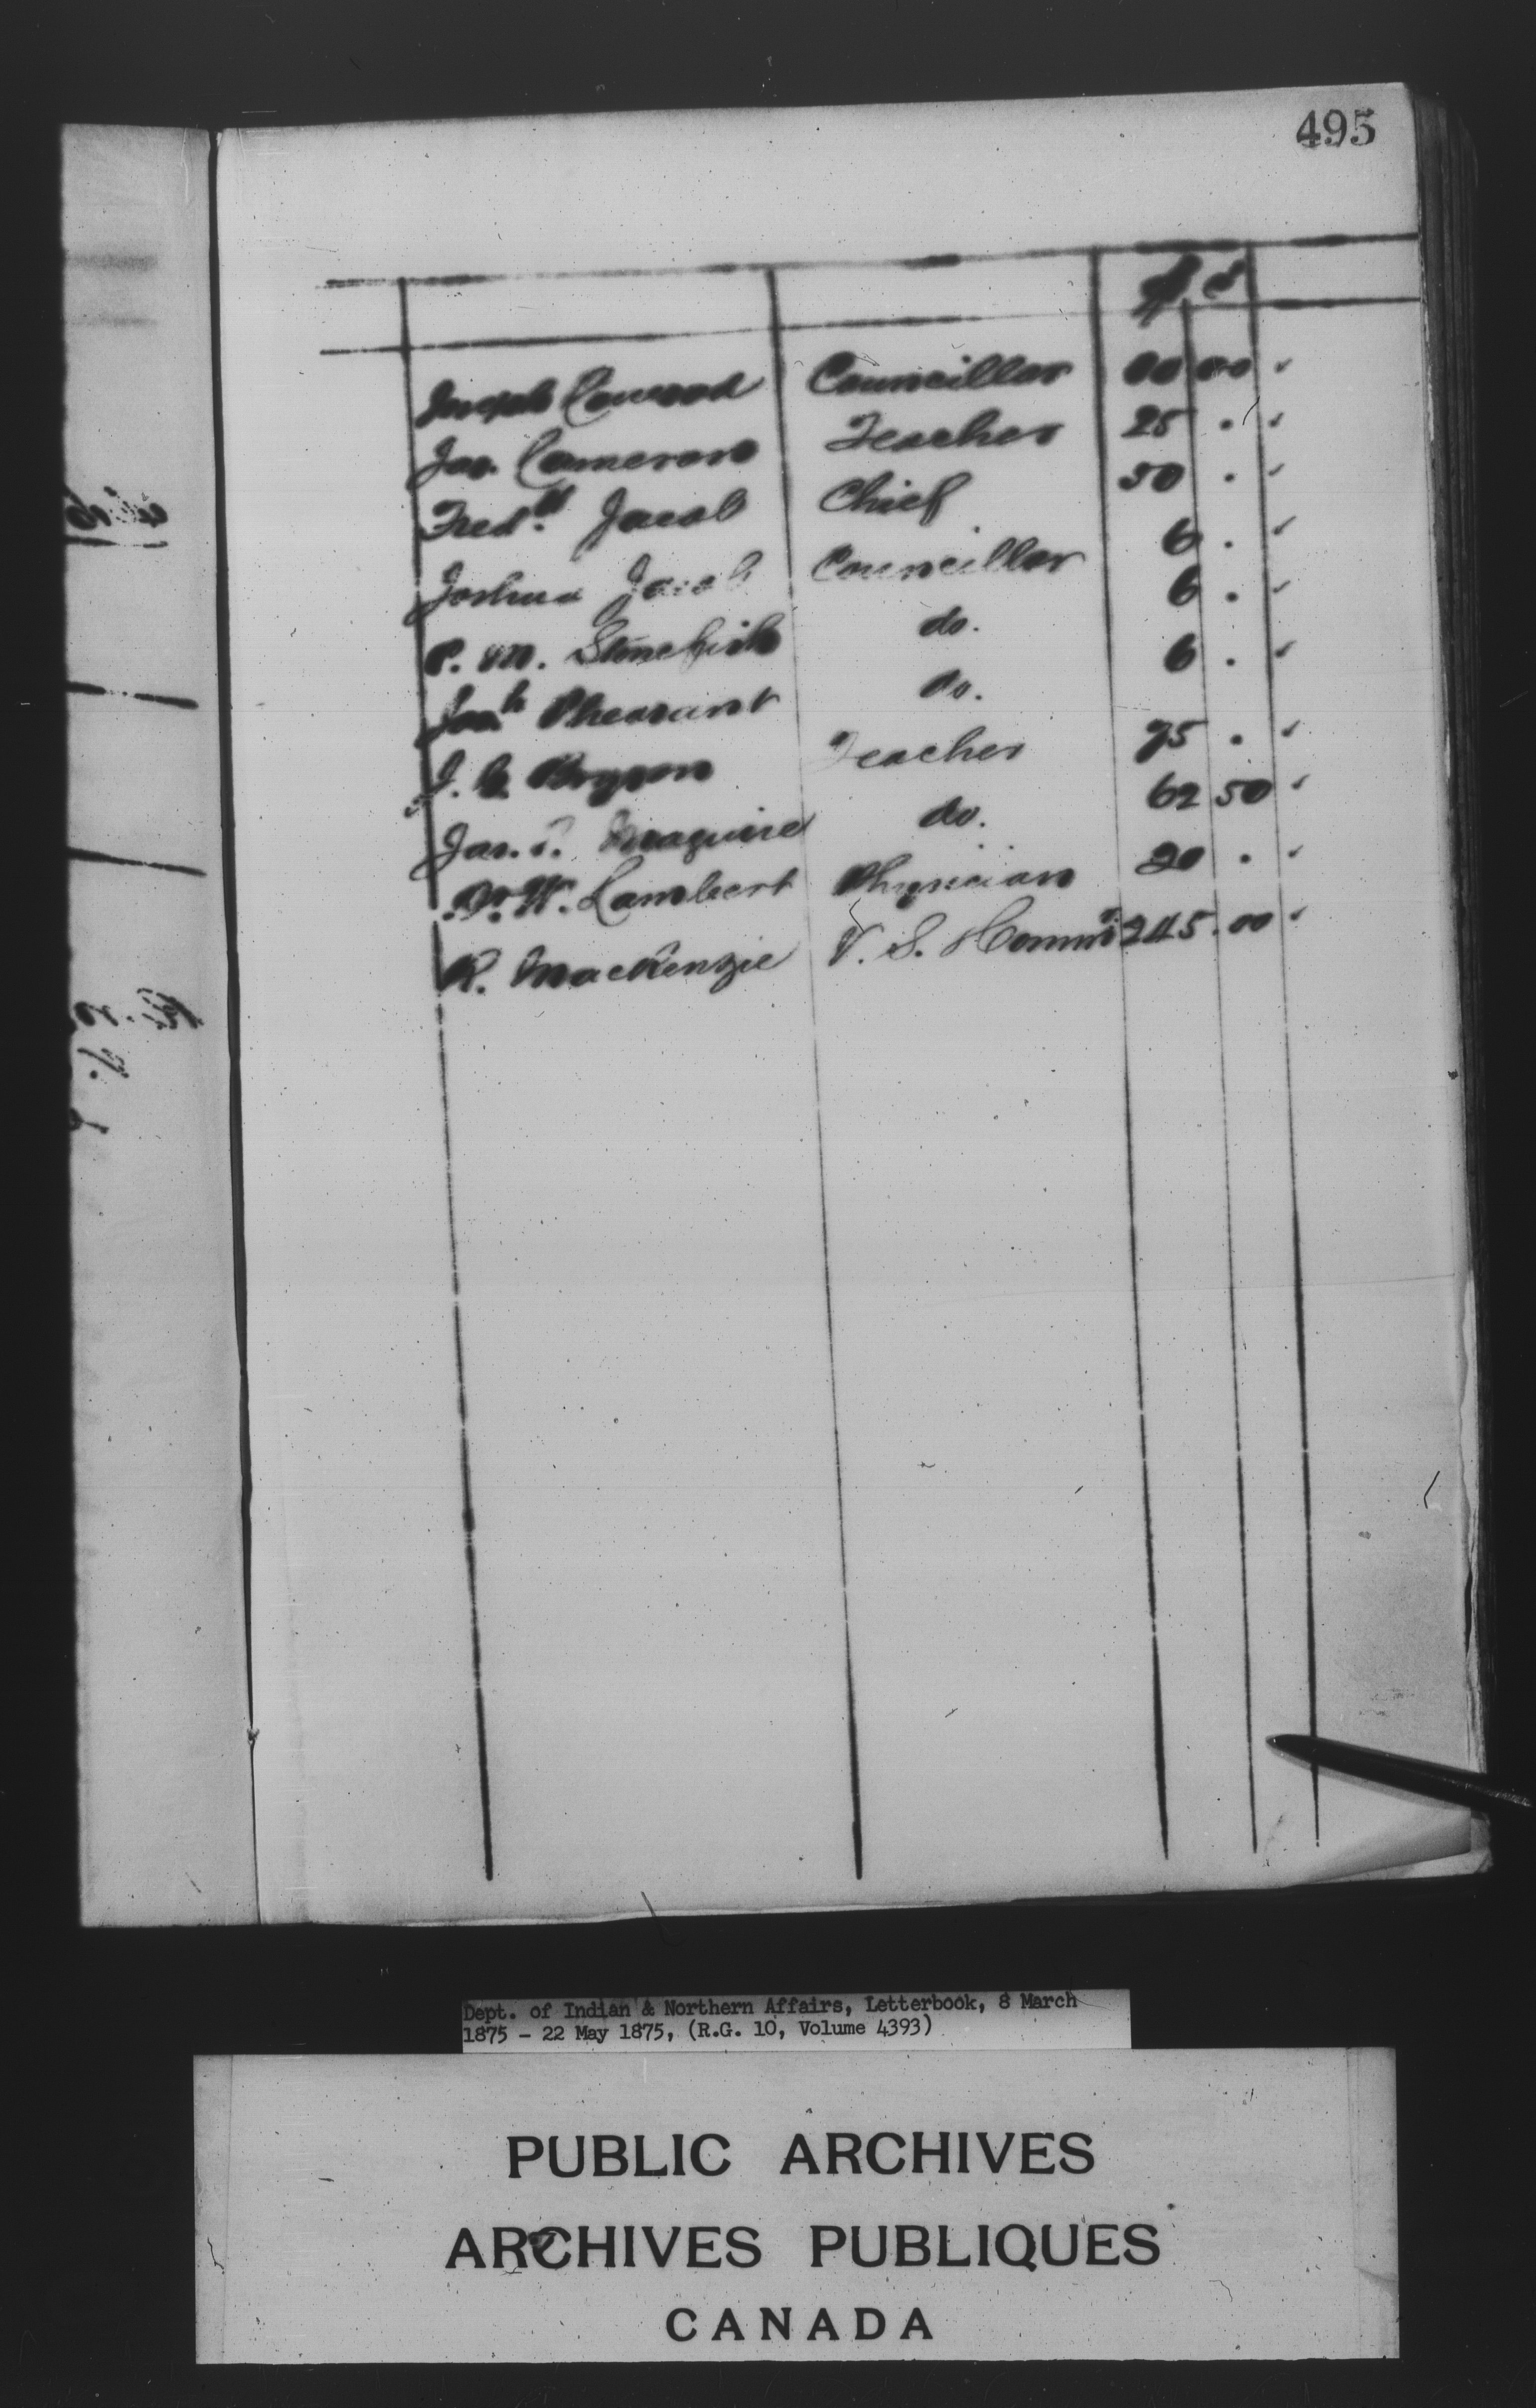 495
$ c
Joseph Councillor 00 00
Jas. Cameron Teacher 25 .
Fredk Jacob Chief 50 .
Joshua Jacob Councillor 6 .
P. M. Stonefish do. 6 .
Josh Pheasant do. 6 .
J. Bryson Teacher 75 .
Jas. Maguire do. 62 50
Dr. W. Lambert Physician 20 .
R. MacKenzie V. S. 245.00
Dept. of Indian & Northern Affairs, Letterbook, 8 March
1875 - 22 May 1875, (R.G. 10, Volume 4393)
PUBLIC ARCHIVES
ARCHIVES PUBLIQUES
CANADA